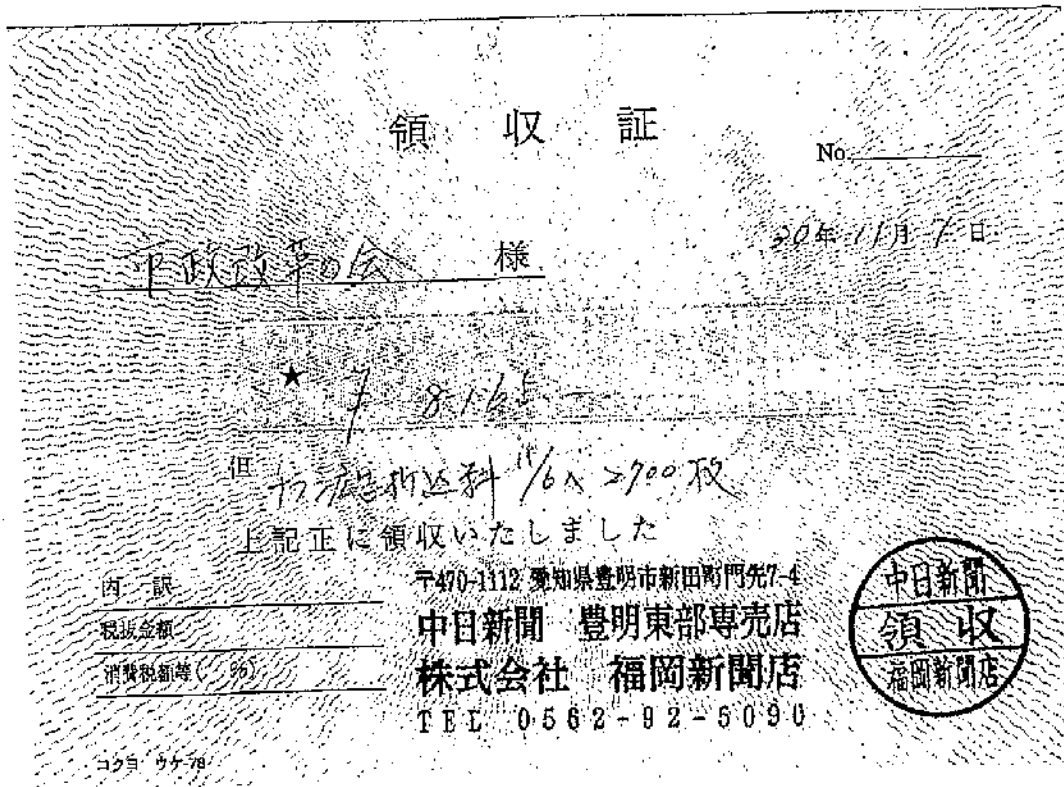 領 収 証
No.
市政改革の会 様
20年 11月 1日
★ 8,165-
但 チラシ折込料 11/6入 2700枚
上記正に領収いたしました
内 訳
税抜金額
消費税額等( %)
〒470-1112 愛知県豊明市新田町門先7-4
中日新聞 豊明東部専売店
株式会社 福岡新聞店
TEL 0562-92-5090
中日新聞
領 収
福岡新聞店
コクヨ ウケ-78